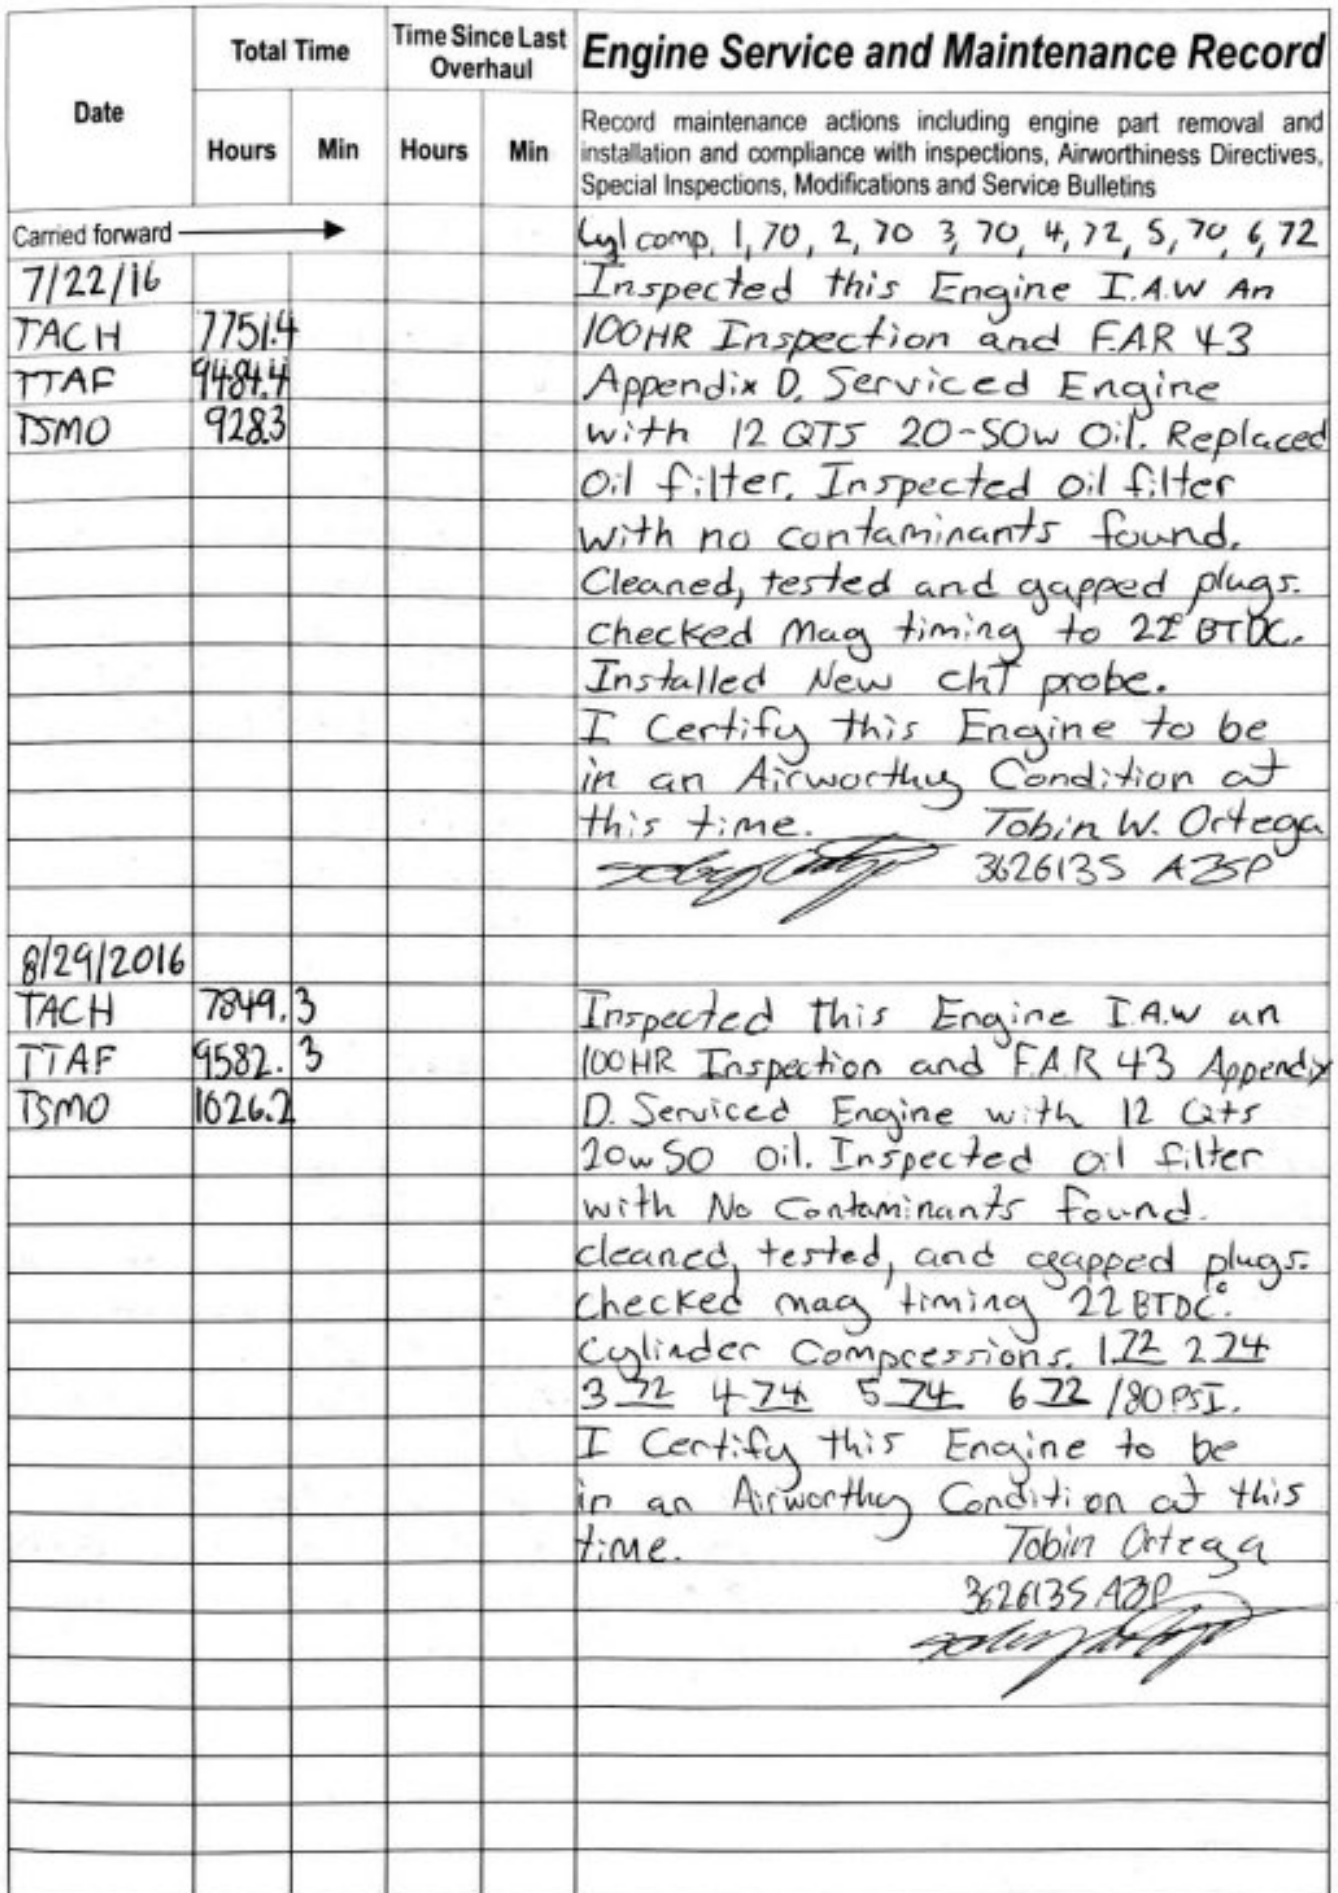 Date
Total Time
Time Since Last Overhaul
Engine Service and Maintenance Record
Hours Min Hours Min
Record maintenance actions including engine part removal and
installation and compliance with inspections, Airworthiness Directives,
Special Inspections, Modifications and Service Bulletins
Carried forward Cyl comp. 1,70, 2,70 3,70, 4,72, 5,70, 6,72
7/22/16 Inspected this Engine I.A.W An
TACH 7751.4 100HR Inspection and F.A.R 43
TTAF 9484.4 Appendix D. Serviced Engine
TSMO 928.3 with 12 QTS 20-50w Oil. Replaced
Oil filter. Inspected oil filter
with no contaminants found.
Cleaned, tested and gapped plugs.
Checked Mag timing to 22° BTDC.
Installed New CHT probe.
I Certify this Engine to be
in an Airworthy Condition at
this time. Tobin W. Ortega
3626135 A&P
8/29/2016
TACH 7849.3 Inspected this Engine I.A.W an
TTAF 9582.3 100HR Inspection and F.A.R 43 Appendix
TSMO 1026.2 D. Serviced Engine with 12 Qts
20w50 Oil. Inspected oil filter
with No Contaminants found.
cleaned, tested, and gapped plugs.
Checked mag timing 22 BTDC°.
Cylinder Compressions. 1 72 2 74
3 72 4 74 5 74 6 72 /80 PSI.
I Certify this Engine to be
in an Airworthy Condition at this
time. Tobin Ortega
3626135 A&P